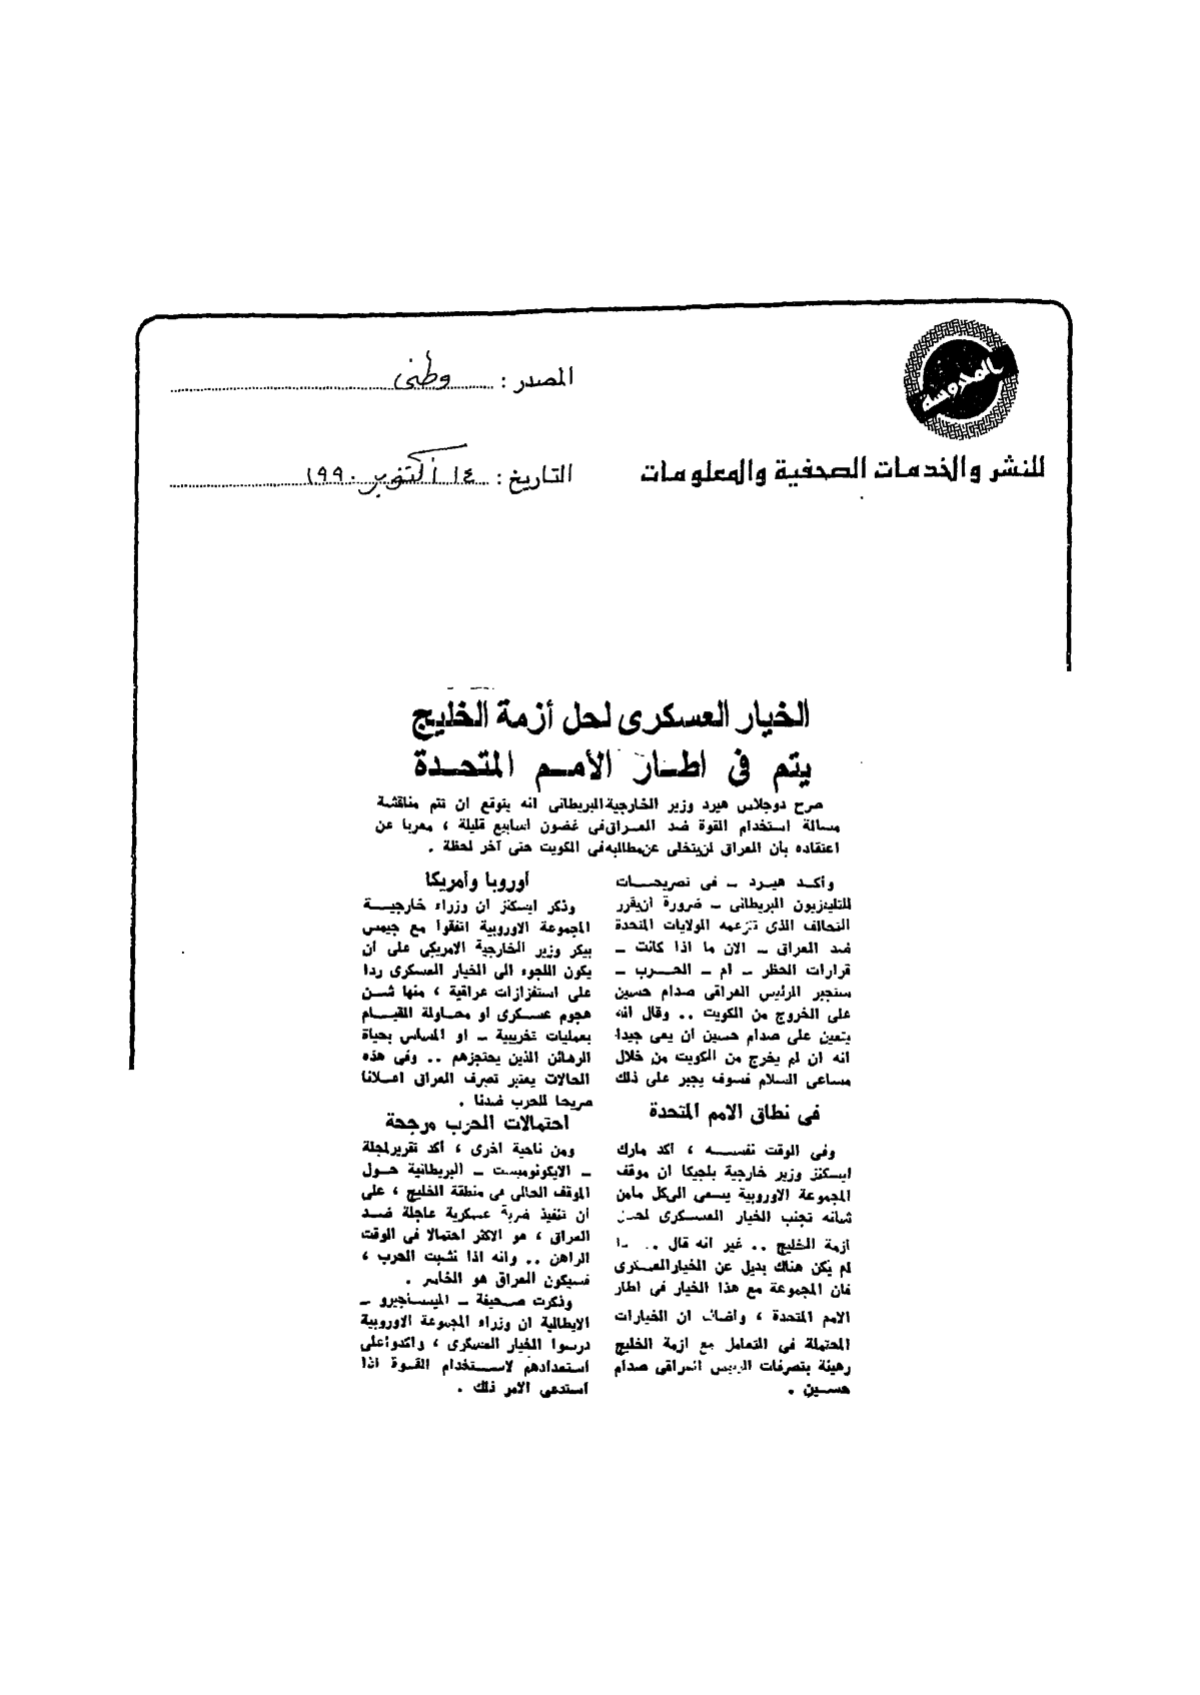 المحروسة
للنشر والخدمات الصحفية والمعلومات
المصدر : وطنى
التاريخ : ١٤ أكتوبر ١٩٩٠
الخيار العسكرى لحل أزمة الخليج
يتم فى اطار الأمم المتحدة
صرح دوجلاس هيرد وزير الخارجية البريطانى انه يتوقع ان تتم مناقشة
مسالة استخدام القوة ضد العراق فى غضون اسابيع قليلة ، معربا عن
اعتقاده بأن العراق لن يتخلى عن مطالبه فى الكويت حتى آخر لحظة .
وأكد هيرد ـ فى تصريحات
للتليفزيون البريطانى ـ ضرورة ان يقرر
التحالف الذى تتزعمه الولايات المتحدة
ضد العراق ـ الان ما اذا كانت ـ
قرارات الحظر ـ ام ـ الحرب ـ
ستجبر الرئيس العراقى صدام حسين
على الخروج من الكويت .. وقال انه
يتعين على صدام حسين ان يعى جيدا
انه ان لم يخرج من الكويت من خلال
مساعى السلام فسوف يجبر على ذلك
فى نطاق الامم المتحدة
وفى الوقت نفسه ، اكد مارك
ايسكنز وزير خارجية بلجيكا ان موقف
المجموعة الاوروبية يسعى الى كل مامن
شانه تجنب الخيار العسكرى لحل
ازمة الخليج .. غير انه قال ..
لم يكن هناك بديل عن الخيار العسكرى
فان المجموعة مع هذا الخيار فى اطار
الامم المتحدة ، واضاف ان الخيارات
المحتملة فى التعامل مع ازمة الخليج
رهينة بتصرفات الرئيس العراقى صدام
حسين .
أوروبا وأمريكا
وذكر ايسكنز ان وزراء خارجية
المجموعة الاوروبية اتفقوا مع جيمس
بيكر وزير الخارجية الامريكى على أن
يكون اللجوء الى الخيار العسكرى ردا
على استفزازات عراقية ، منها شن
هجوم عسكرى او محاولة القيام
بعمليات تخريبية ـ او المساس بحياة
الرهائن الذين يحتجزهم .. وفى هذه
الحالات يعتبر تصرف العراق اعلانا
صريحا للحرب ضدنا .
احتمالات الحرب مرجحة
ومن ناحية اخرى ، أكد تقرير لمجلة
ـ الايكونوميست ـ البريطانية حول
الموقف الحالى فى منطقة الخليج ، على
أن تنفيذ ضربة عسكرية عاجلة ضد
العراق ، هو الاكثر احتمالا فى الوقت
الراهن .. وانه اذا نشبت الحرب ،
فسيكون العراق هو الخاسر .
وذكرت صحيفة ـ الميساجيرو ـ
الايطالية ان وزراء المجموعة الاوروبية
درسوا الخيار العسكرى ، واكدوا على
استعدادهم لاستخدام القوة اذا
استدعى الامر ذلك .